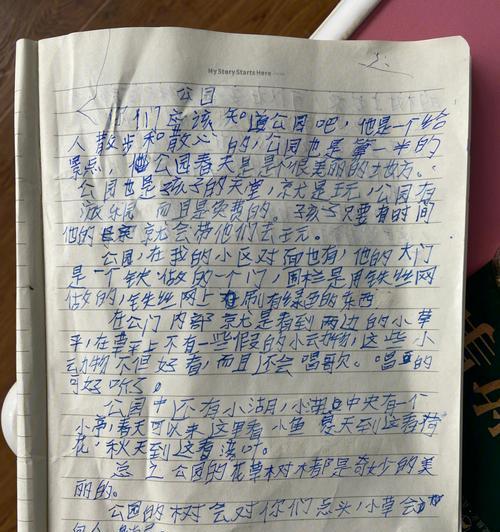 My Story Starts Here
公园
你们应该知道公园吧，他是一个给
人散步和散心的，公园也是第一米的
景点，公园春天是是很美丽的地方。
公园也是孩子的天堂，京尤是玩，公园有
游乐园而且是免费的。孩子只要有时间
他的京尤会带他们去玩。
公园，在我的小区对面也有，他的大门
是一个铁做的一个门，围栏是用铁丝网
做的，铁丝网上有刷有绿色的东西
在公门内部京尤是看到两边的小草
平，在草平上不有一些假的小动物，这些小
动物不但好看，而且还会唱歌。唱的
可好听了。
公园中还有小湖，小湖中央有一个
小亭，春天可以来这里看小鱼夏天到这看荷
花，秋天到这看
总之公园的花草树木都是奇妙的美
丽的。
公园的树会对你们点头，小草会
向人